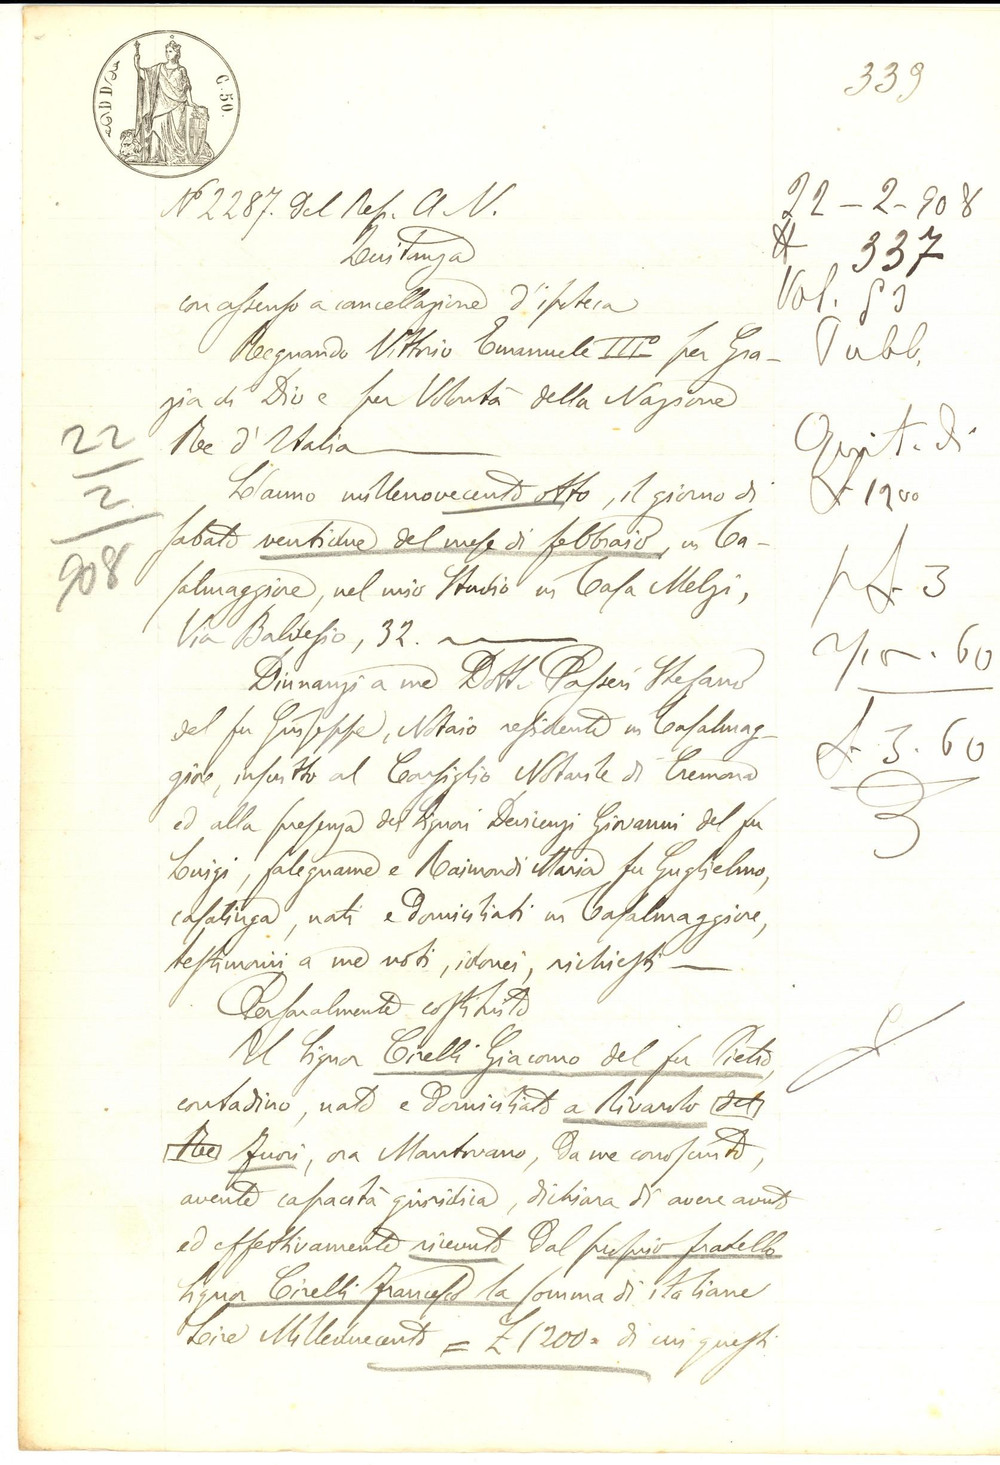 C. 50.
339
N° 2287. del Rep. A. N.
Quitanza
con assenso a cancellazione d'ipoteca
Regnando Vittorio Emanuele III° per Gra-
zia di Dio e per Volontà della Nazione
Re d'Italia
L'anno millenovecento otto, il giorno di
sabato ventidue del mese di febbraio, in Ca-
salmaggiore, nel mio Studio in Casa Melzi,
Via Baldesio, 32.
Dinnanzi a me Dott. Passeri Stefano
del fu Giuseppe, Notaio residente in Casalmag-
giore, inscritto al Consiglio Notarile di Cremona
ed alla presenza dei Signori Devicenzi Giovanni del fu
Luigi, falegname e Raimondi Maria fu Guglielmo,
casalinga, nati e domiciliati in Casalmaggiore,
testimoni a me noti, idonei, richiesti
Personalmente costituito
Il Signor Cirelli Giacomo del fu Pietro,
contadino, nato e domiciliato a Rivarolo del
Re Fuori, ora Mantovano, da me conosciuto,
avente capacità giuridica, dichiara di avere avuto
ed effettivamente ricevuto dal proprio fratello
Signor Cirelli Francesco la somma di italiane
Lire Milleduecento = £ 1200 = di cui questi
22
2
908
22-2-908
# 337
Vol. 53
Pubb.
Quit. di
£ 1200
£ 3
60
£ 3.60